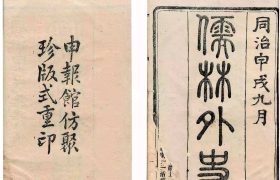 同治甲戌九月
儒林外史
申報館仿聚
珍版式重印